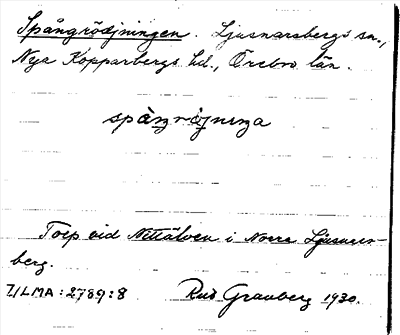 Spångrödjningen. Ljusnarsbergs sn.,
Nya Kopparbergs hd., Örebro län.
spåŋrö̀jniŋa
Torp vid Nittälven i Norra Ljusnars-
berg.
ULMA:2789:8 Rud Granberg 1930.